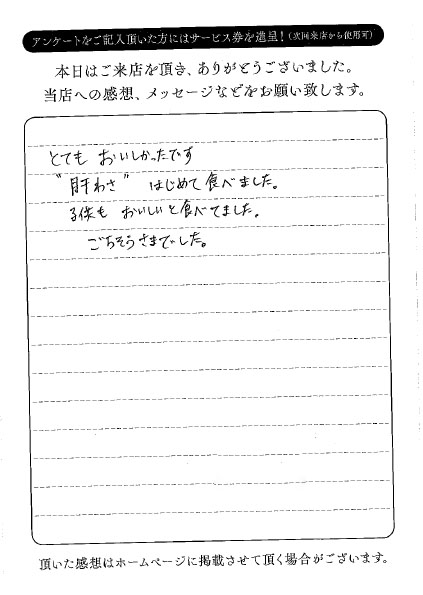 アンケートをご記入頂いた方にはサービス券を進呈！（次回来店から使用可）
本日はご来店を頂き、ありがとうございました。
当店への感想、メッセージなどをお願い致します。
とても おいしかったです
"肝わさ" はじめて食べました。
子供も おいしいと食べてました。
ごちそうさまでした。
頂いた感想はホームページに掲載させて頂く場合がございます。